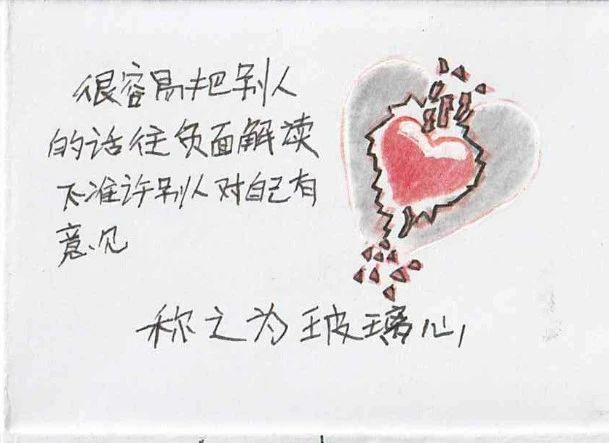 很容易把别人
的话往负面解读
不准许别人对自己有
意见
称之为玻璃心